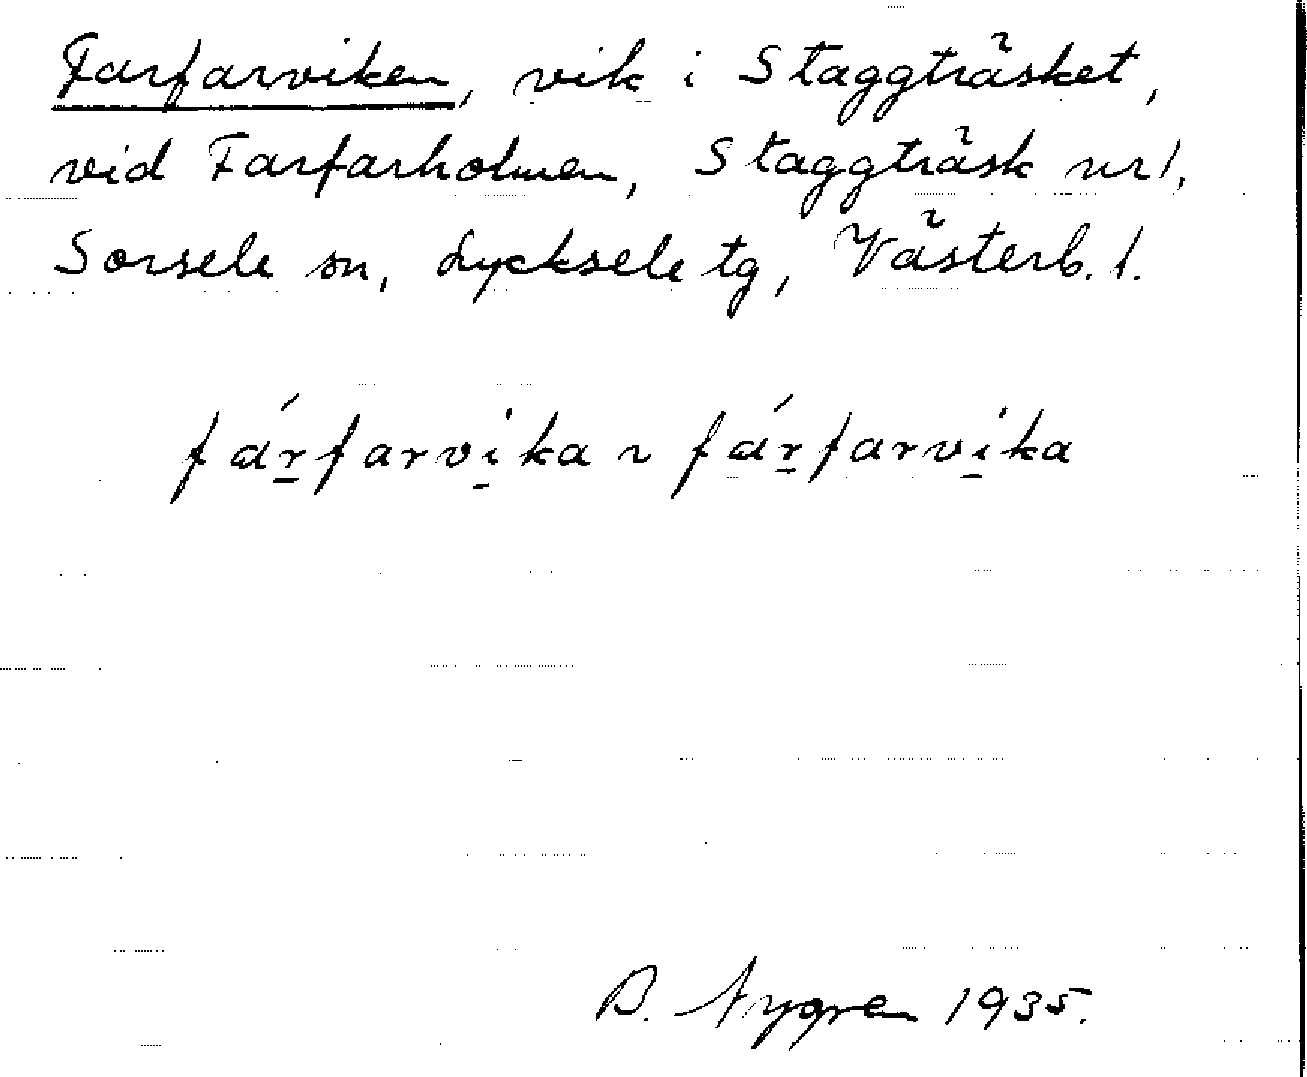 Farfarviken, vik i Staggträsket,
vid Farfarholmen, Staggträsk nr 1,
Sorsele sn, Lycksele tg, Västerb. l.
fár̲farvi̲ka ~ fár̲farvi̲ka
B. Nygren 1935.